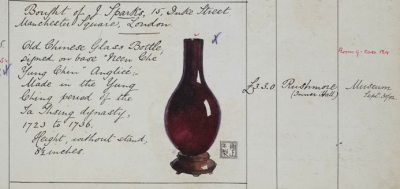 Bought of J. Sparks, 15, Duke Street
Manchester Square, London
Old Chinese Glass Bottle,
signed on base "Neen Che
Yung Chin Anglice,-
Made in the Yung
Ching period of the
Ta Thsing dynasty,
1723 to 1736.
Height, without stand,
8½ inches.
£3.3.0
Rushmore
(Inner Hall)
Museum
Room 9 - Case